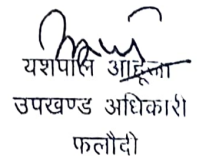 यशपाल आहूजा
उपखण्ड अधिकारी
फलौदी